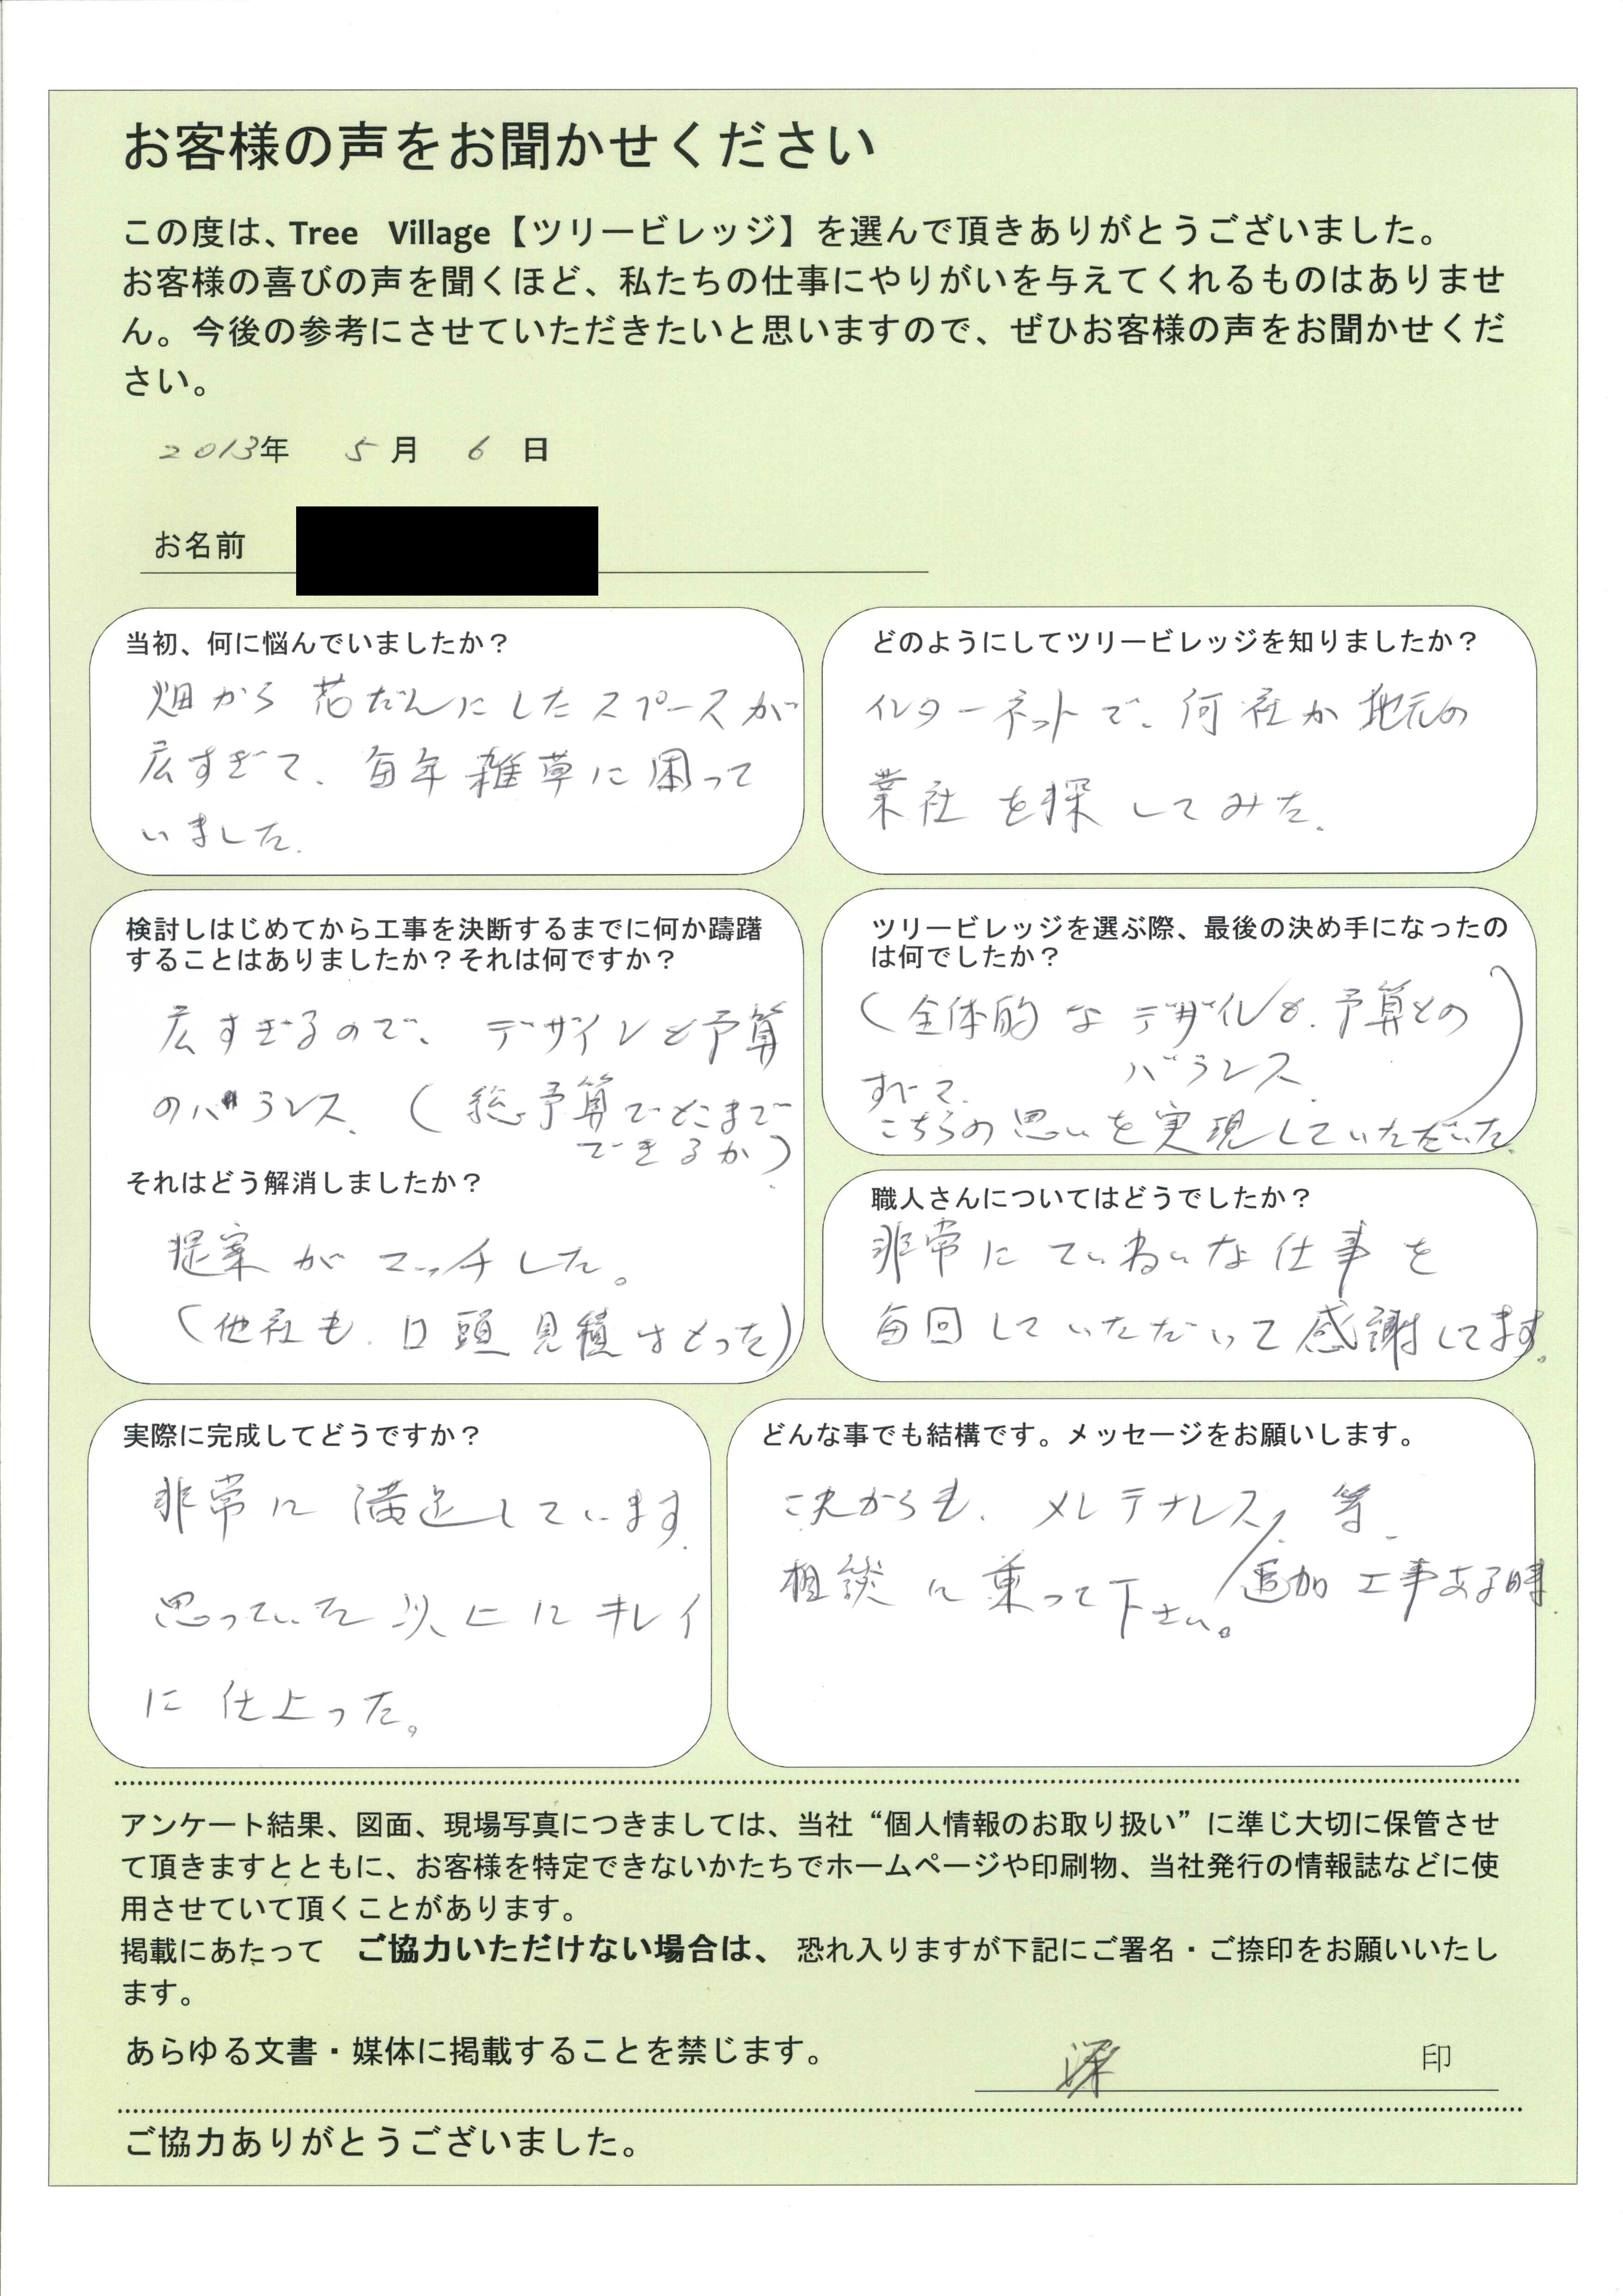 お客様の声をお聞かせください
この度は、Tree Village【ツリービレッジ】を選んで頂きありがとうございました。
お客様の喜びの声を聞くほど、私たちの仕事にやりがいを与えてくれるものはありませ
ん。今後の参考にさせていただきたいと思いますので、ぜひお客様の声をお聞かせくだ
さい。
2013年 5月 6日
お名前
当初、何に悩んでいましたか？
畑から花だんにしたスペースが
広すぎて、毎年雑草に困って
いました.
どのようにしてツリービレッジを知りましたか？
インターネットで、何社か地元の
業社を探してみた.
検討しはじめてから工事を決断するまでに何か躊躇
することはありましたか？それは何ですか？
広すぎるので、デザインと予算
のバランス.（総予算でどこまで
できるか）
それはどう解消しましたか？
提案がマッチした。
（他社も、口頭見積はとった）
ツリービレッジを選ぶ際、最後の決め手になったの
は何でしたか？
（全体的なデザインと、予算との
バランス.）
すべて、
こちらの思いを実現していただいた.
職人さんについてはどうでしたか？
非常にていねいな仕事を
毎回していただいて感謝してます。
実際に完成してどうですか？
非常に満足しています.
思っていた以上にキレイ
に仕上った。
どんな事でも結構です。メッセージをお願いします。
これからも、メンテナンス、等、
追加工事ある時.
相談に乗って下さい。
アンケート結果、図面、現場写真につきましては、当社“個人情報のお取り扱い”に準じ大切に保管させ
て頂きますとともに、お客様を特定できないかたちでホームページや印刷物、当社発行の情報誌などに使
用させていて頂くことがあります。
掲載にあたって ご協力いただけない場合は、恐れ入りますが下記にご署名・ご捺印をお願いいたし
ます。
あらゆる文書・媒体に掲載することを禁じます。 印
ご協力ありがとうございました。